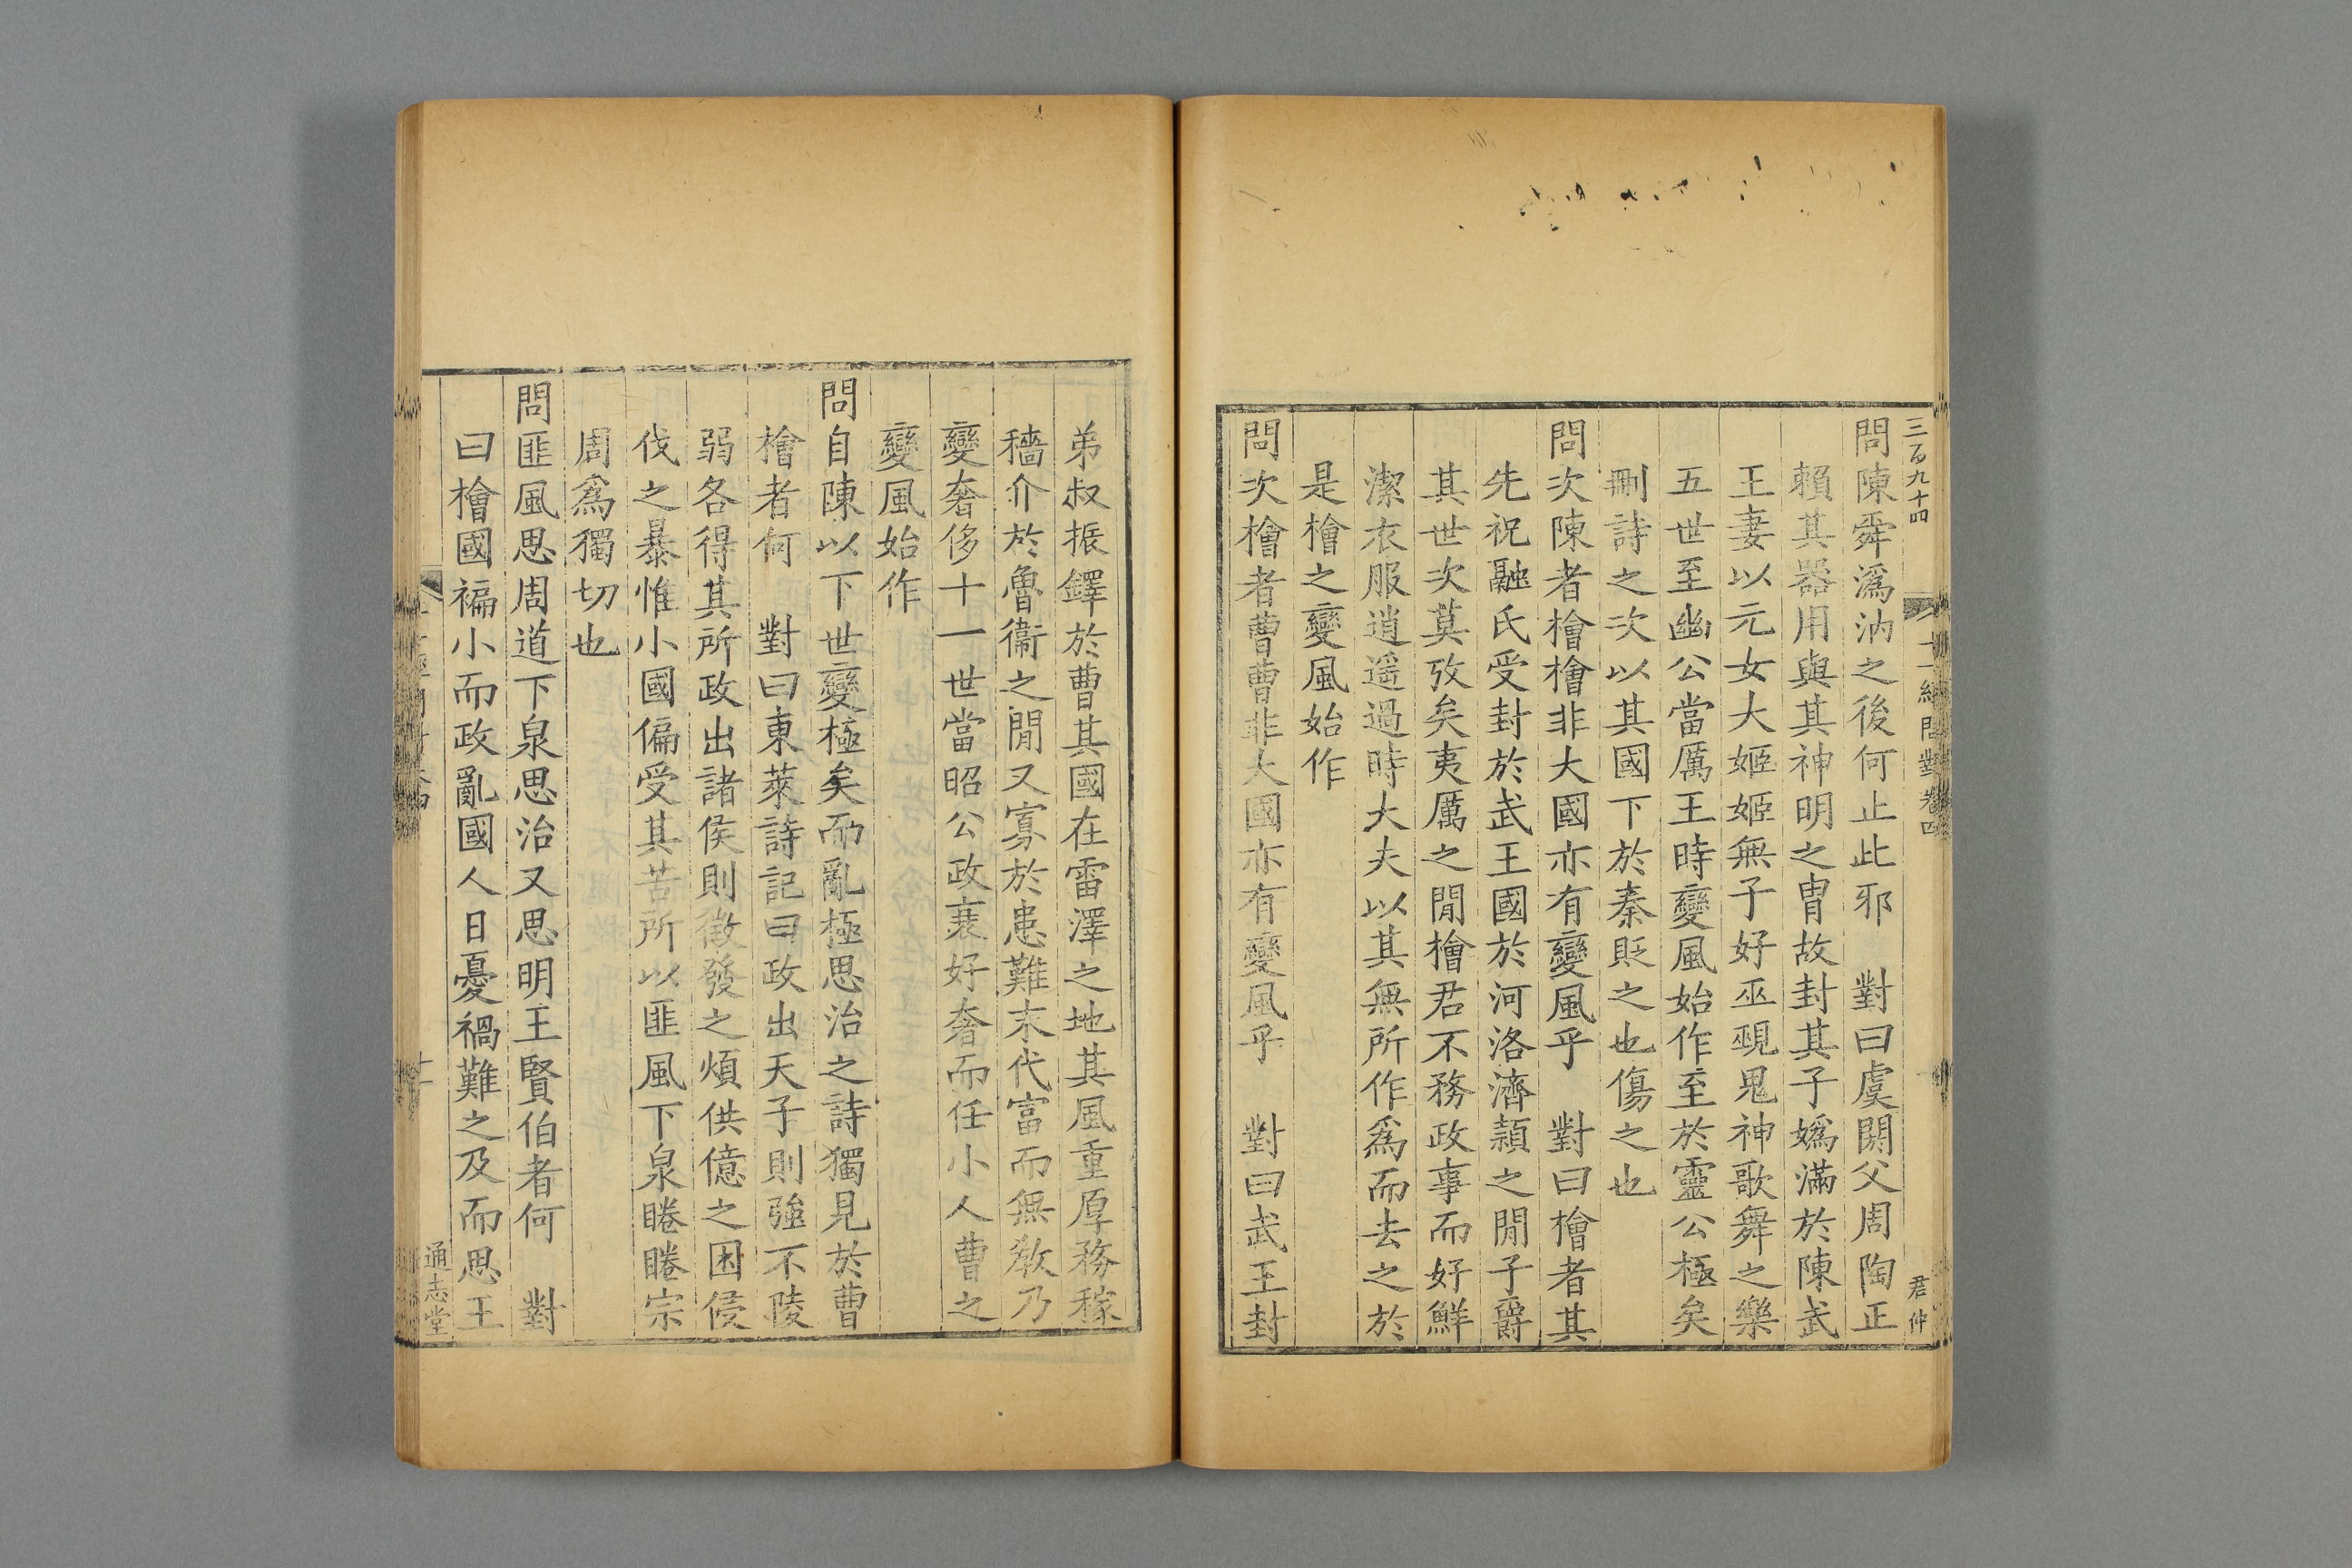 三百九十四
君仲
問陳舜潙汭之後何止此邪　對曰虞閼父周陶正
賴其器用與其神明之胄故封其子嬀滿於陳武
王妻以元女大姬姬無子好巫覡鬼神歌舞之樂
五世至幽公當厲王時變風始作至於靈公極矣
刪詩之次以其國下於秦貶之也傷之也
問次陳者檜檜非大國亦有變風乎　對曰檜者其
先祝融氏受封於武王國於河洛濟潁之閒子爵
其世次莫攷矣夷厲之閒檜君不務政事而好鮮
潔衣服逍遥過時大夫以其無所作爲而去之於
是檜之變風始作
問次檜者曹曹非大國亦有變風乎　對曰武王封
弟叔振鐸於曹其國在雷澤之地其風重厚務稼
穡介於魯衞之閒又寡於患難末代富而無教乃
變奢侈十一世當昭公政衰好奢而任小人曹之
變風始作
問自陳以下世變極矣而亂極思治之詩獨見於曹
檜者何　對曰東萊詩記曰政出天子則強不陵
弱各得其所政出諸侯則徵發之煩供億之困侵
伐之暴惟小國偏受其苦所以匪風下泉睠睠宗
周爲獨切也
問匪風思周道下泉思治又思明王賢伯者何　對
曰檜國褊小而政亂國人日憂禍難之及而思王
通志堂